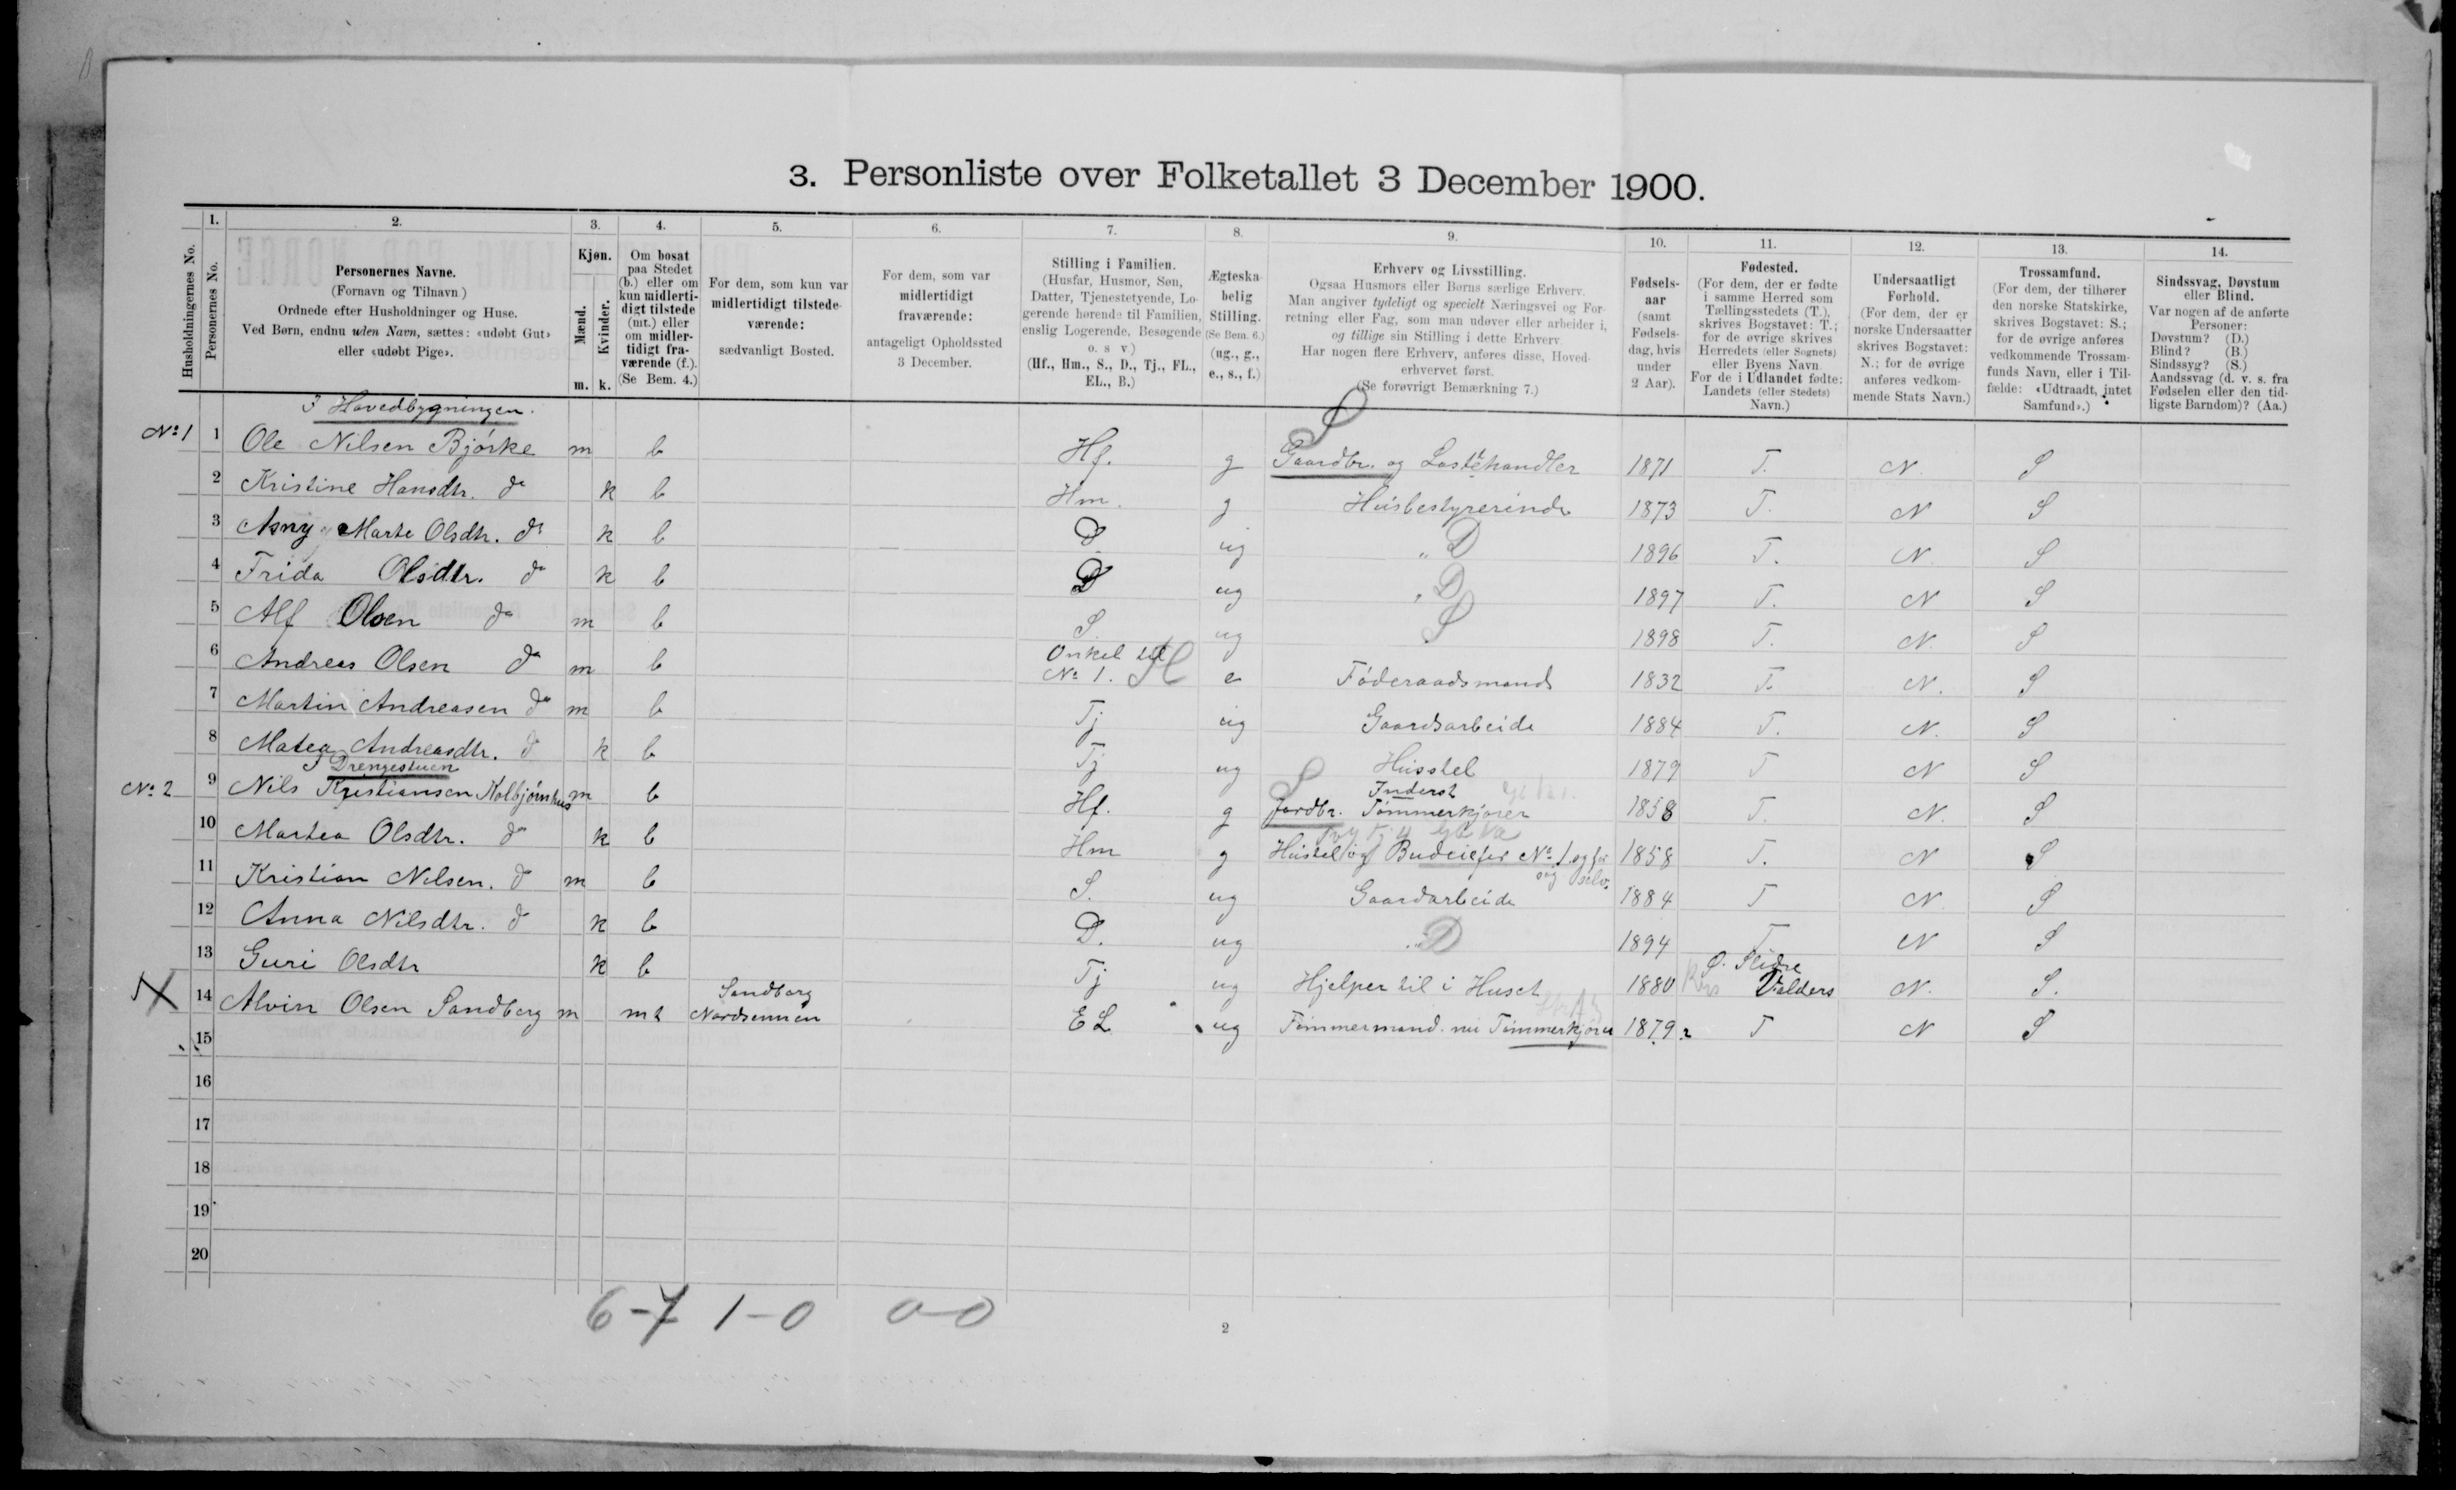 3. Personliste over Folketallet 3 December 1900.
1. 2. 3. 4. 5. 6. 7. 8. 9. 10. 11. 12. 13. 14.
Husholdningernes No.
Personernes No.
Personernes Navne.
(Fornavn og Tilnavn)
Ordnede efter Husholdninger og Huse.
Ved Børn, endnu uden Navn, sættes: «udøbt Gut»
eller «udøbt Pige».
Kjøn.
Mænd.
Kvinder.
m. k.
Om bosat
paa Stedet
(b.) eller om
kun midlerti-
digt tilstede
(mt.) eller
om midler-
tidigt fra-
værende (f.).
(Se Bem. 4.)
For dem, som kun var
midlertidigt tilstede-
værende:
sædvanligt Bosted.
For dem, som var
midlertidigt
fraværende:
antageligt Opholdssted
3 December.
Stilling i Familien.
(Husfar, Husmor, Søn,
Datter, Tjenestetyende, Lo-
gerende hørende til Familien,
enslig Logerende, Besøgende
o. s v.)
(Hf., Hm., S., D., Tj., FL.,
EL., B.)
Ægteska-
belig
Stilling.
(Se Bem. 6.)
(ug., g.,
e., s., f.)
Erhverv og Livsstilling.
Ogsaa Husmors eller Børns særlige Erhverv.
Man angiver tydeligt og specielt Næringsvei og For-
retning eller Fag, som man udøver eller arbeider i,
og tillige sin Stilling i dette Erhverv.
Har nogen flere Erhverv, anføres disse, Hoved-
erhvervet først.
(Se forøvrigt Bemærkning 7.)
Fødsels-
aar
(samt
Fødsels-
dag, hvis
under
2 Aar).
Fødested.
(For dem, der er fødte
i samme Herred som
Tællingsstedets (T.),
skrives Bogstavet: T.;
for de øvrige skrives
Herredets (eller Sognets)
eller Byens Navn.
For de i Udlandet fødte:
Landets (eller Stedets)
Navn.)
Undersaatligt
Forhold.
(For dem, der er
norske Undersaatter
skrives Bogstavet:
N.; for de øvrige
anføres vedkom-
mende Stats Navn.)
Trossamfund.
(For dem, der tilhører
den norske Statskirke,
skrives Bogstavet: S.;
for de øvrige anføres
vedkommende Trossam-
funds Navn, eller i Til-
fælde: «Udtraadt, intet
Samfund».)
Sindssvag, Døvstum
eller Blind.
Var nogen af de anførte
Personer:
Døvstum? (D.)
Blind? (B.)
Sindssyg? (S.)
Aandssvag (d. v. s. fra
Fødselen eller den tid-
ligste Barndom)? (Aa.)
I Hovedbygningen.
S
No 1 1 Ole Nilsen Bjørke m b Hf. g Gaardbr. og Lastehandler 1871 T. N. S
2 Kristine Hansdtr. do k b Hm. g Husbestyrerinde 1873 T. N S
3 Agny Marte Olsdtr. do k b D ug " D 1896 T. N. S
4 Frida Olsdtr. do k b D ug " D 1897 T. N S
5 Alf Olsen do m b S. ug S 1898 T. N. S
6 Andreas Olsen do m b Onkel til No 1. H e Föderaadsmand 1832 T. N. S
7 Martin Andreasen do m b Tj ug Gaardsarbeide 1884 T. N. S
8 Matea Andreasdtr. do k b Tj ug Husstel 1879 T N S
I Drengestuen
S Inderst
No 2 9 Nils Kristiansen Kolbjørnhus m b Hf. g Jordbr. Tømmerkjører 1858 T. N. S
10 Martea Olsdtr. do k b Hm g Husstel og Budeie for No 1 og for sig selv. 1858 T. N S
11 Kristian Nilsen. do m b S. ug Gaardarbeide 1884 T N S
12 Anna Nilsdtr. do k b D. ug " D 1894 T N S
13 Guri Olsdtr k b Tj ug Hjelper til i Huset 1880 Ø. Slidre Valders N. S.
14 Alvin Olsen Sandberg m mt Sandberg Nordsinnen EL ug Tømmermand. nu Tømmerkjører 1879 T N S
15
16
17
18
19
20
6-7 1-0 0-0
2